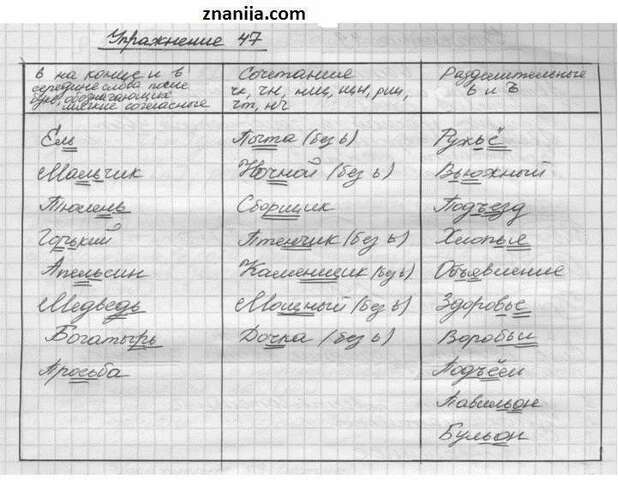 znanija.com
Упражнение 47
ь на конце и в середине слова после букв, обозначающих мягкие согласные
Сочетание чк, чн, нщ, щн, рщ, чт, нч
Разделительные ь и ъ
Ель Почта (без ь) Ружьё
Мальчик Ночной (без ь) Вьюжный
Тюлень Сборщик Подъезд
Горький Птенчик (без ь) Хлопья
Апельсин Каменщик (без ь) Объявление
Медведь Мощный (без ь) Здоровье
Богатырь Дочка (без ь) Воробьи
Просьба Подъём
Павильон
Бульон